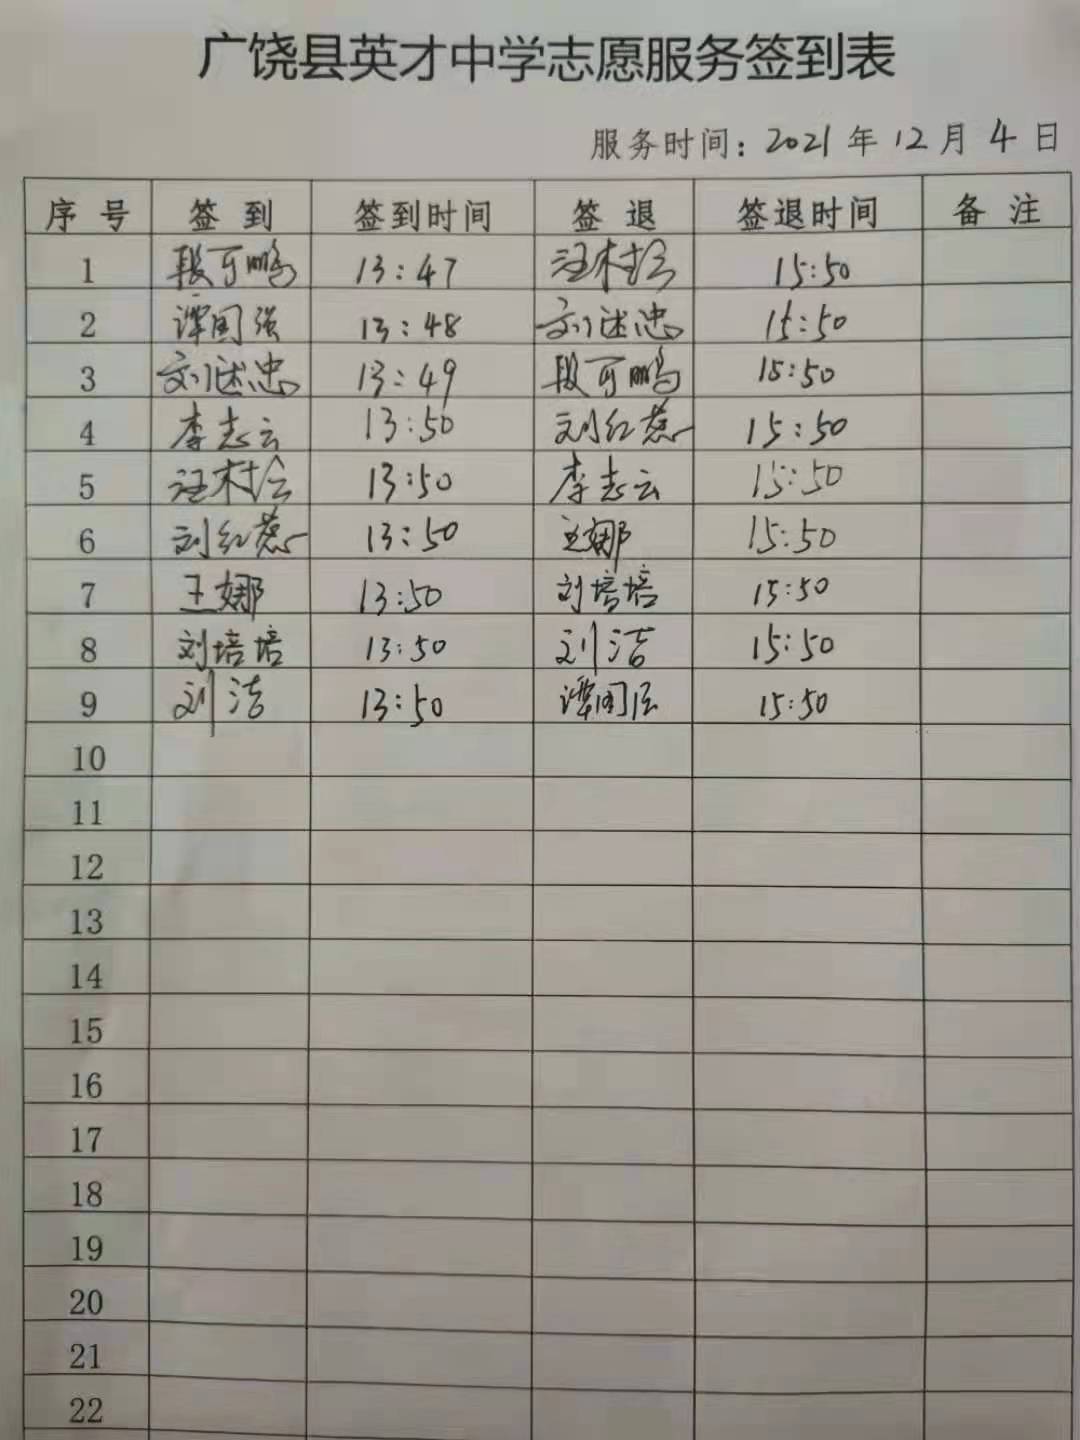 广饶县英才中学志愿服务签到表
服务时间：2021年12月4日
序号 签到 签到时间 签退 签退时间 备注
1 段可鹏 13:47 15:50
2 谭国强 13:48 刘述忠 15:50
3 刘述忠 13:49 段可鹏 15:50
4 李志云 13:50 刘红燕 15:50
5 13:50 李志云 15:50
6 刘红燕 13:50 王娜 15:50
7 王娜 13:50 刘培培 15:50
8 刘培培 13:50 刘洁 15:50
9 刘洁 13:50 谭国强 15:50
10
11
12
13
14
15
16
17
18
19
20
21
22